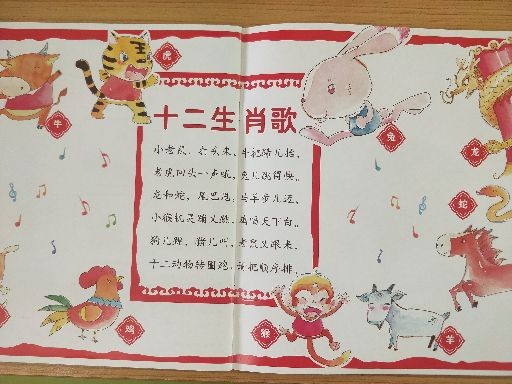 虎
牛
兔
龙
蛇
鸡
猴
羊
十二生肖歌
小老鼠，打头来，牛把蹄儿抬，
老虎回头一声吼，兔儿跳得快，
龙和蛇，尾巴甩，马羊步儿迈，
小猴机灵蹦又跳，鸡唱天下白，
狗儿跳，猪儿叫，老鼠又跟来，
十二动物转圈跑，请把顺序排。